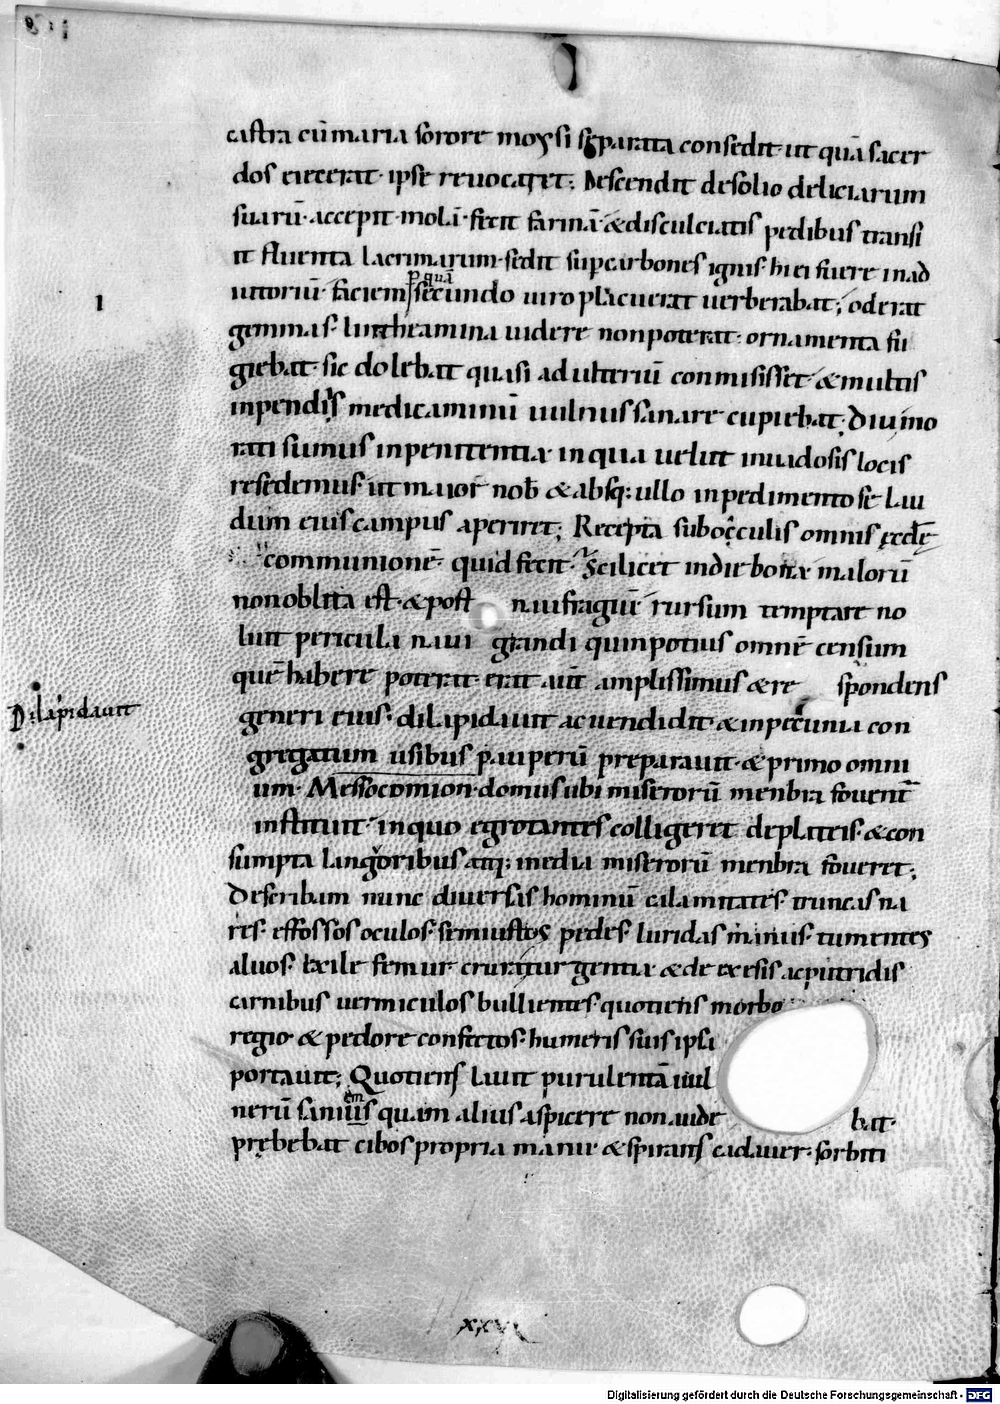 castra cū maria sorore moysi separata consedit· ut quā sacer
dos eiecerat· ipse reuocaret; Descendit de solio deliciarum
suarū· accepit molā· fecit farinā· & disculciatis pedibus transi
it fluenta lacrimarum· sedit sup carbones ignis· hi ei fuere in ad
iutoriū· faciem p quā secundo uiro placuerat uerberabat; oderat
gemmas· lintheamina uidere non poterat· ornamenta fu
giebat· sic dolebat quasi adulteriū conmisisset· & multis
inpendiis medicaminū uulnus sanare cupiebat; Diu mo
rati sumus in penitentia· in qua uelut in uadosis locis
resedemus· ut maior nob & absq; ullo inpedimento se lau
dum eius campus aperiret; Recepta sub occulis omnis eccle
communionē· quid fecit· Scilicet in die bona malorū
non oblita est· & post naufragiū rursum temptare no
luit pericula naui grandi quin potius omnē censum
quē habere poterat· erat aut amplissimus & re spondens
generi eius· dilapidauit ac uendidit· & in pecunia con
Dilapidauit
gregatum usibus pauperū preparauit· & primo omni
um· Messocomion· domus ubi miserorū menbra fouent
instituit· in quo egrotantes colligeret de plateis· & con
sumpta langoribus atq; inedia miserorū menbra foueret;
Describam nunc diuersas hominū calamitates· truncas na
res· effossos oculos· semiustos pedes· luridas manus· tumentes
aluos· exile femur· crura turgentia· & de exesis ac putridis
carnibus uermiculos bullientes· quotiens morbo
regio· & pedore confectos· humeris suis ipsa
portauit; Quotiens lauit purulentā uul
nerū saniem quam alius aspicere non aude bat·
prębebat cibos propria manu· & spirans cadauer· sorbiti
I
XXVI
Digitalisierung gefördert durch die Deutsche Forschungsgemeinschaft - DFG